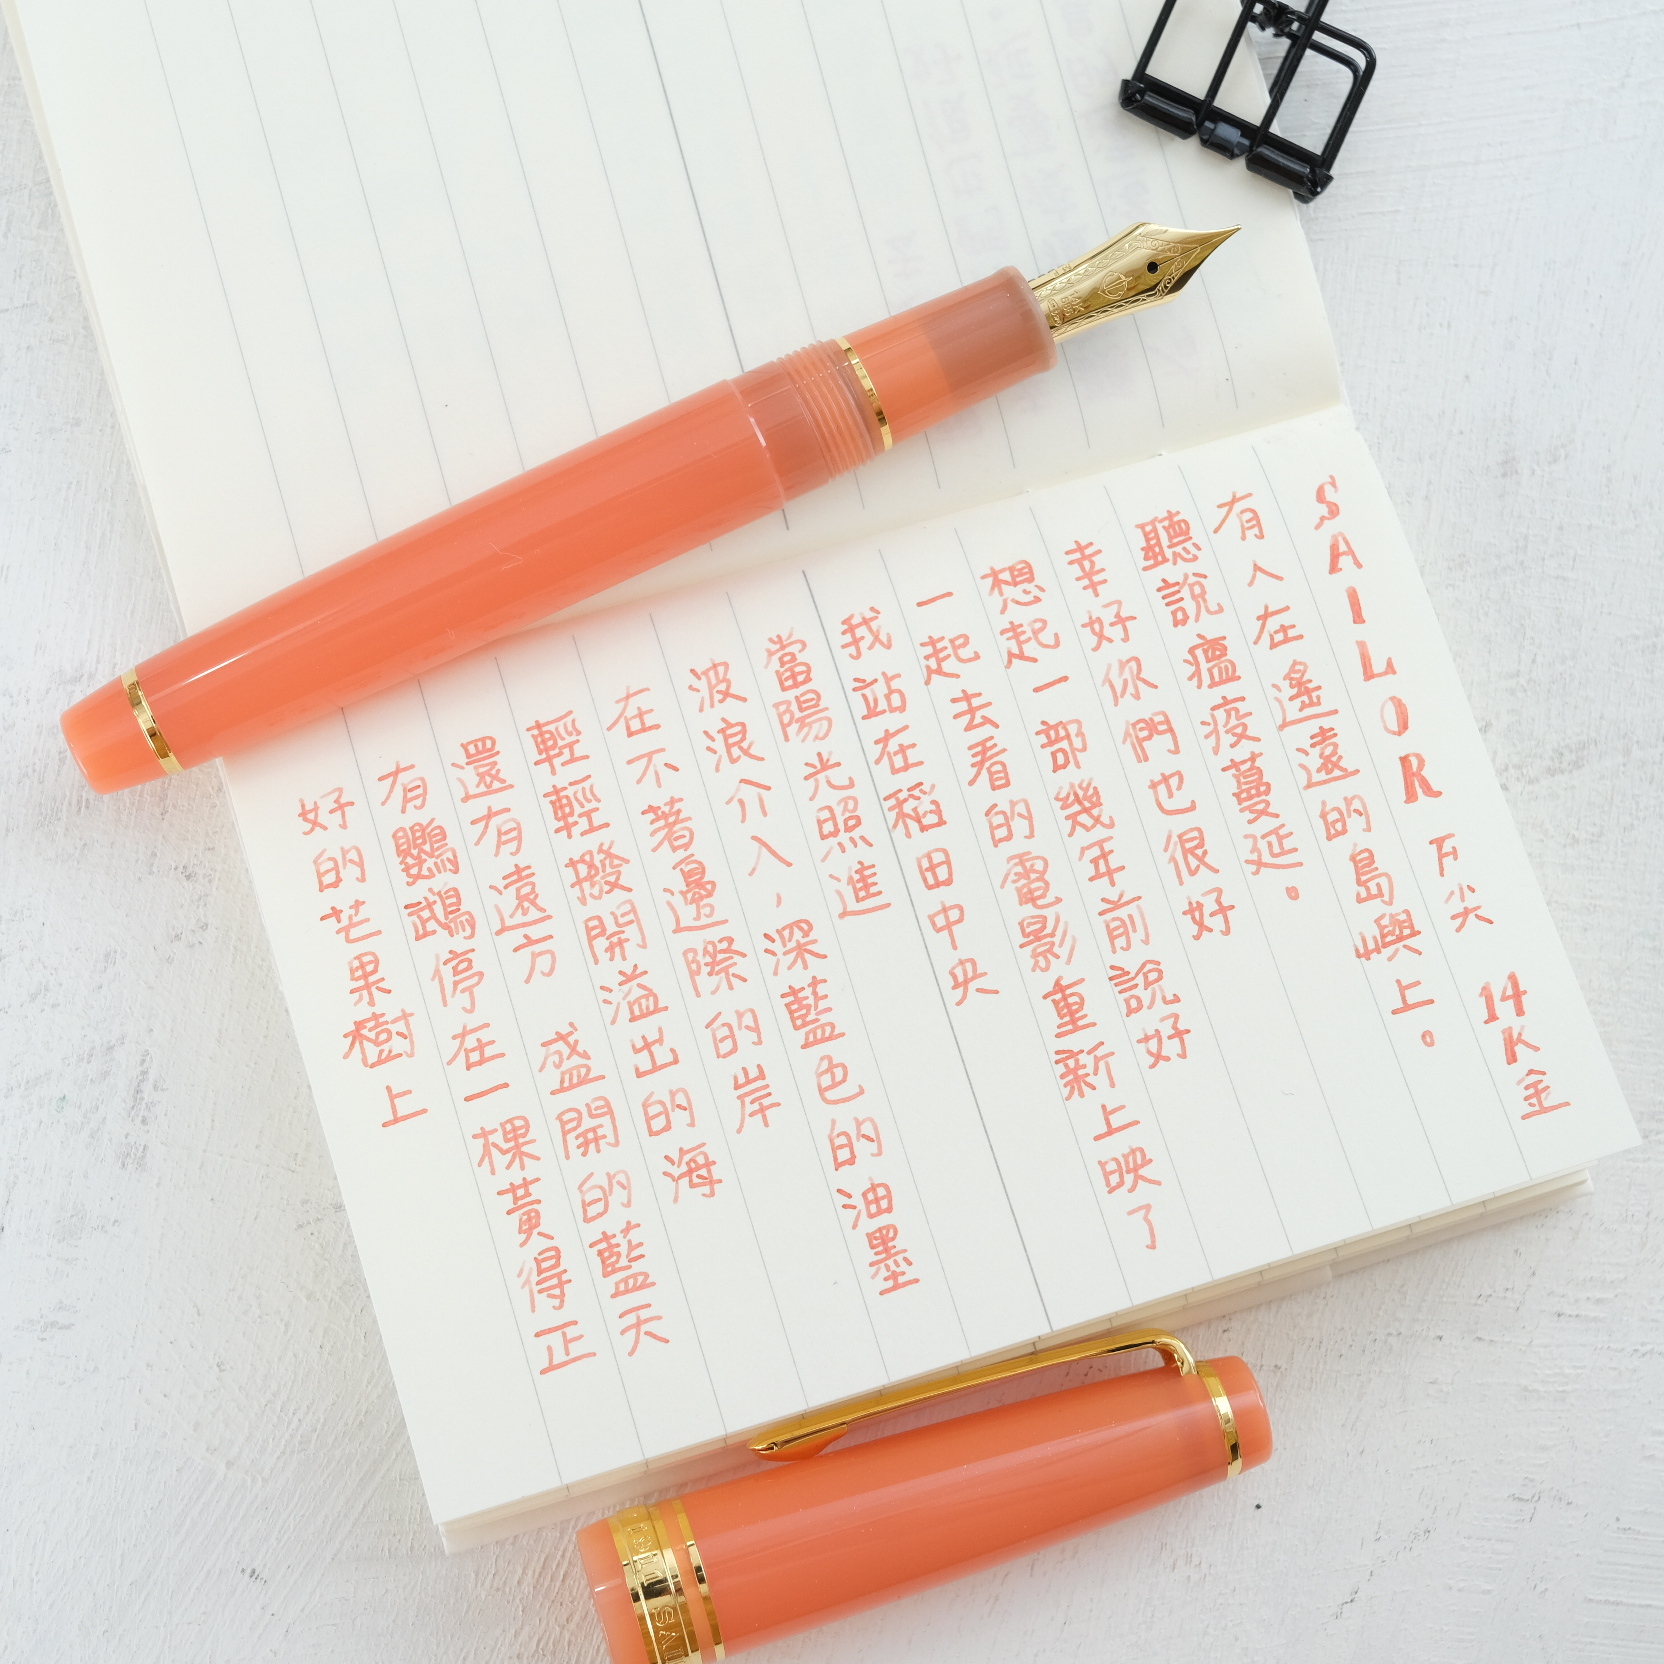 SAILOR F尖 14K金
有人在遙遠的島嶼上。
聽說瘟疫蔓延。
幸好你們也很好
想起一部幾年前說好
一起去看的電影重新上映了
我站在稻田中央
當陽光照進
波浪介入,深藍色的油墨
在不著邊際的岸
輕輕撥開溢出的海
還有遠方 盛開的藍天
有鸚鵡停在一棵黃得正
好的芒果樹上